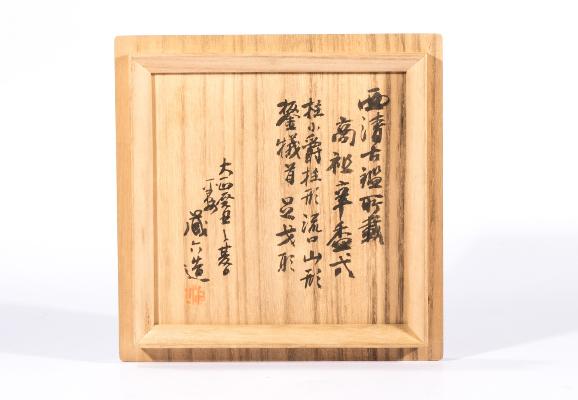 西清古鑑所載
高祖辛盉弐
柱小爵柱形流口山形
鋬犧首足戈形
大正癸丑之暮
蔵六造